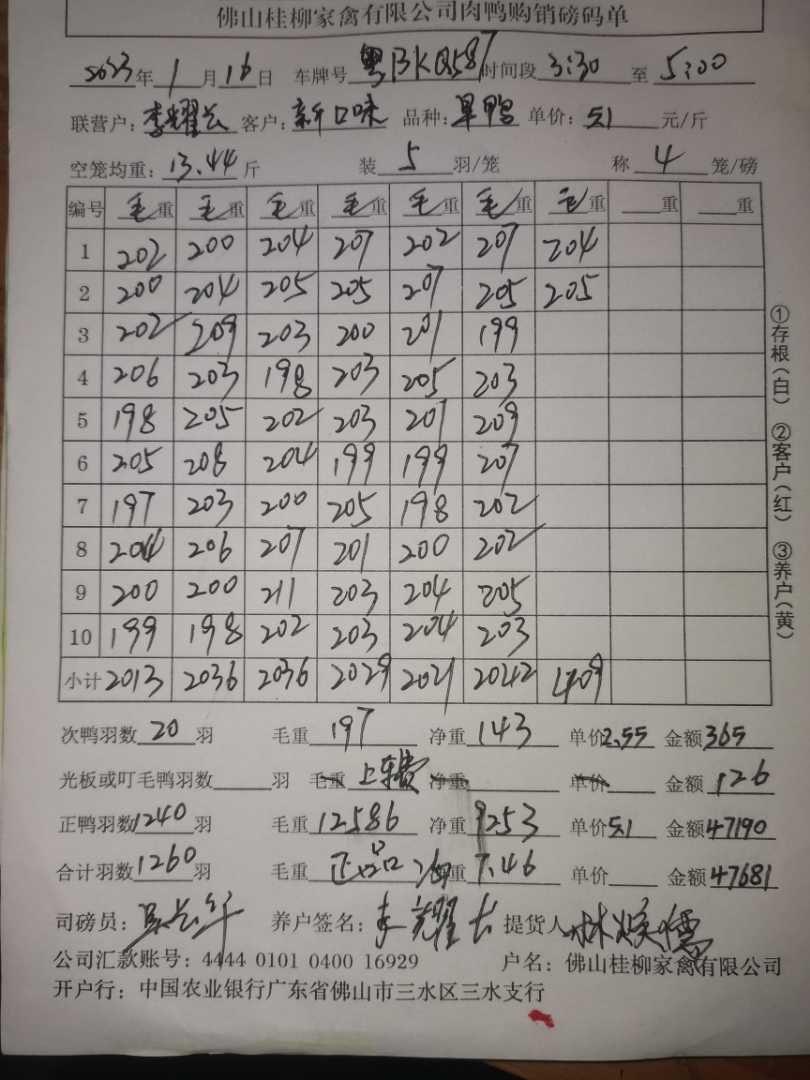 佛山桂柳家禽有限公司肉鸭购销磅码单
2023年1月16日 车牌号 粤BKQ587 时间段 3:30 至 5:00
联营户: 李耀长 客户: 新口味 品种: 单价: 5.1 元/斤
空笼均重: 13.44 斤 装 5 羽/笼 称 4 笼/磅
编号 毛重 毛重 毛重 毛重 毛重 毛重 毛重 重 重
1 202 200 204 207 202 207 204
2 200 204 205 205 207 205 205
3 202 209 203 200 201 199
4 206 203 198 203 205 203
5 198 205 202 203 201 209
6 205 208 204 199 199 207
7 197 203 200 205 198 202
8 204 206 207 201 200 202
9 200 200 211 203 204 205
10 199 198 202 203 204 203
小计 2013 2036 2036 2029 2021 2042 409
次鸭羽数 20 羽 毛重 197 净重 143 单价 2.55 金额 365
光板或叮毛鸭羽数 羽 毛重 上车费 净重 单价 金额 126
正鸭羽数 1240 羽 毛重 12586 净重 9253 单价 5.1 金额 47190
合计羽数 1260 羽 毛重 正品 重 7.46 单价 金额 47681
司磅员: 养户签名: 李耀长 提货人
公司汇款账号: 4444 0101 0400 16929 户名: 佛山桂柳家禽有限公司
开户行: 中国农业银行广东省佛山市三水区三水支行
①存根(白) ②客户(红) ③养户(黄)